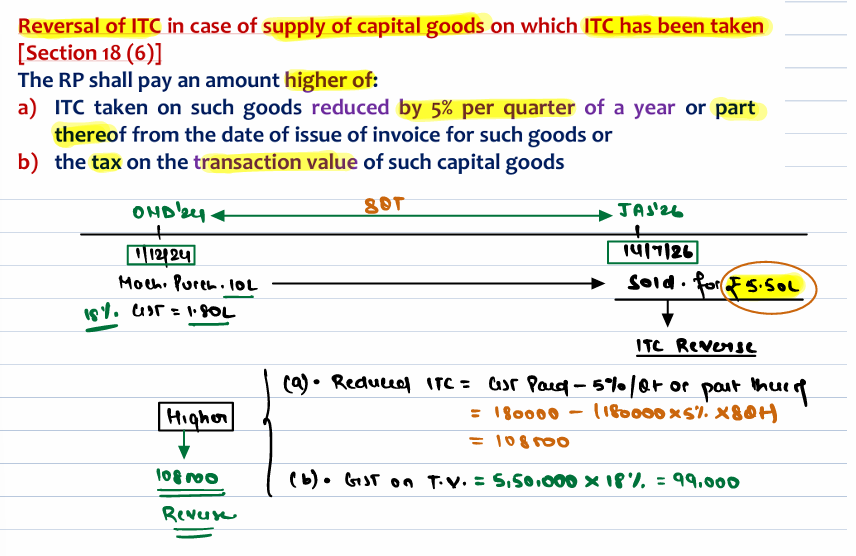 Reversal of ITC in case of supply of capital goods on which ITC has been taken
[Section 18 (6)]
The RP shall pay an amount higher of:
a) ITC taken on such goods reduced by 5% per quarter of a year or part
thereof from the date of issue of invoice for such goods or
b) the tax on the transaction value of such capital goods
OND'24 8QT JAS'26
1/12/24 14/7/26
Mach. Purch. 10L Sold. for ₹5.50L
18%. GST = 1.80L
ITC Reverse
(a). Reduced ITC = GST Paid - 5%/Qt or part thereof
Higher = 180000 - (180000x5%.x8Qt)
= 108000
108000 (b). GST on T.V. = 5,50,000 x 18%. = 99,000
Reverse